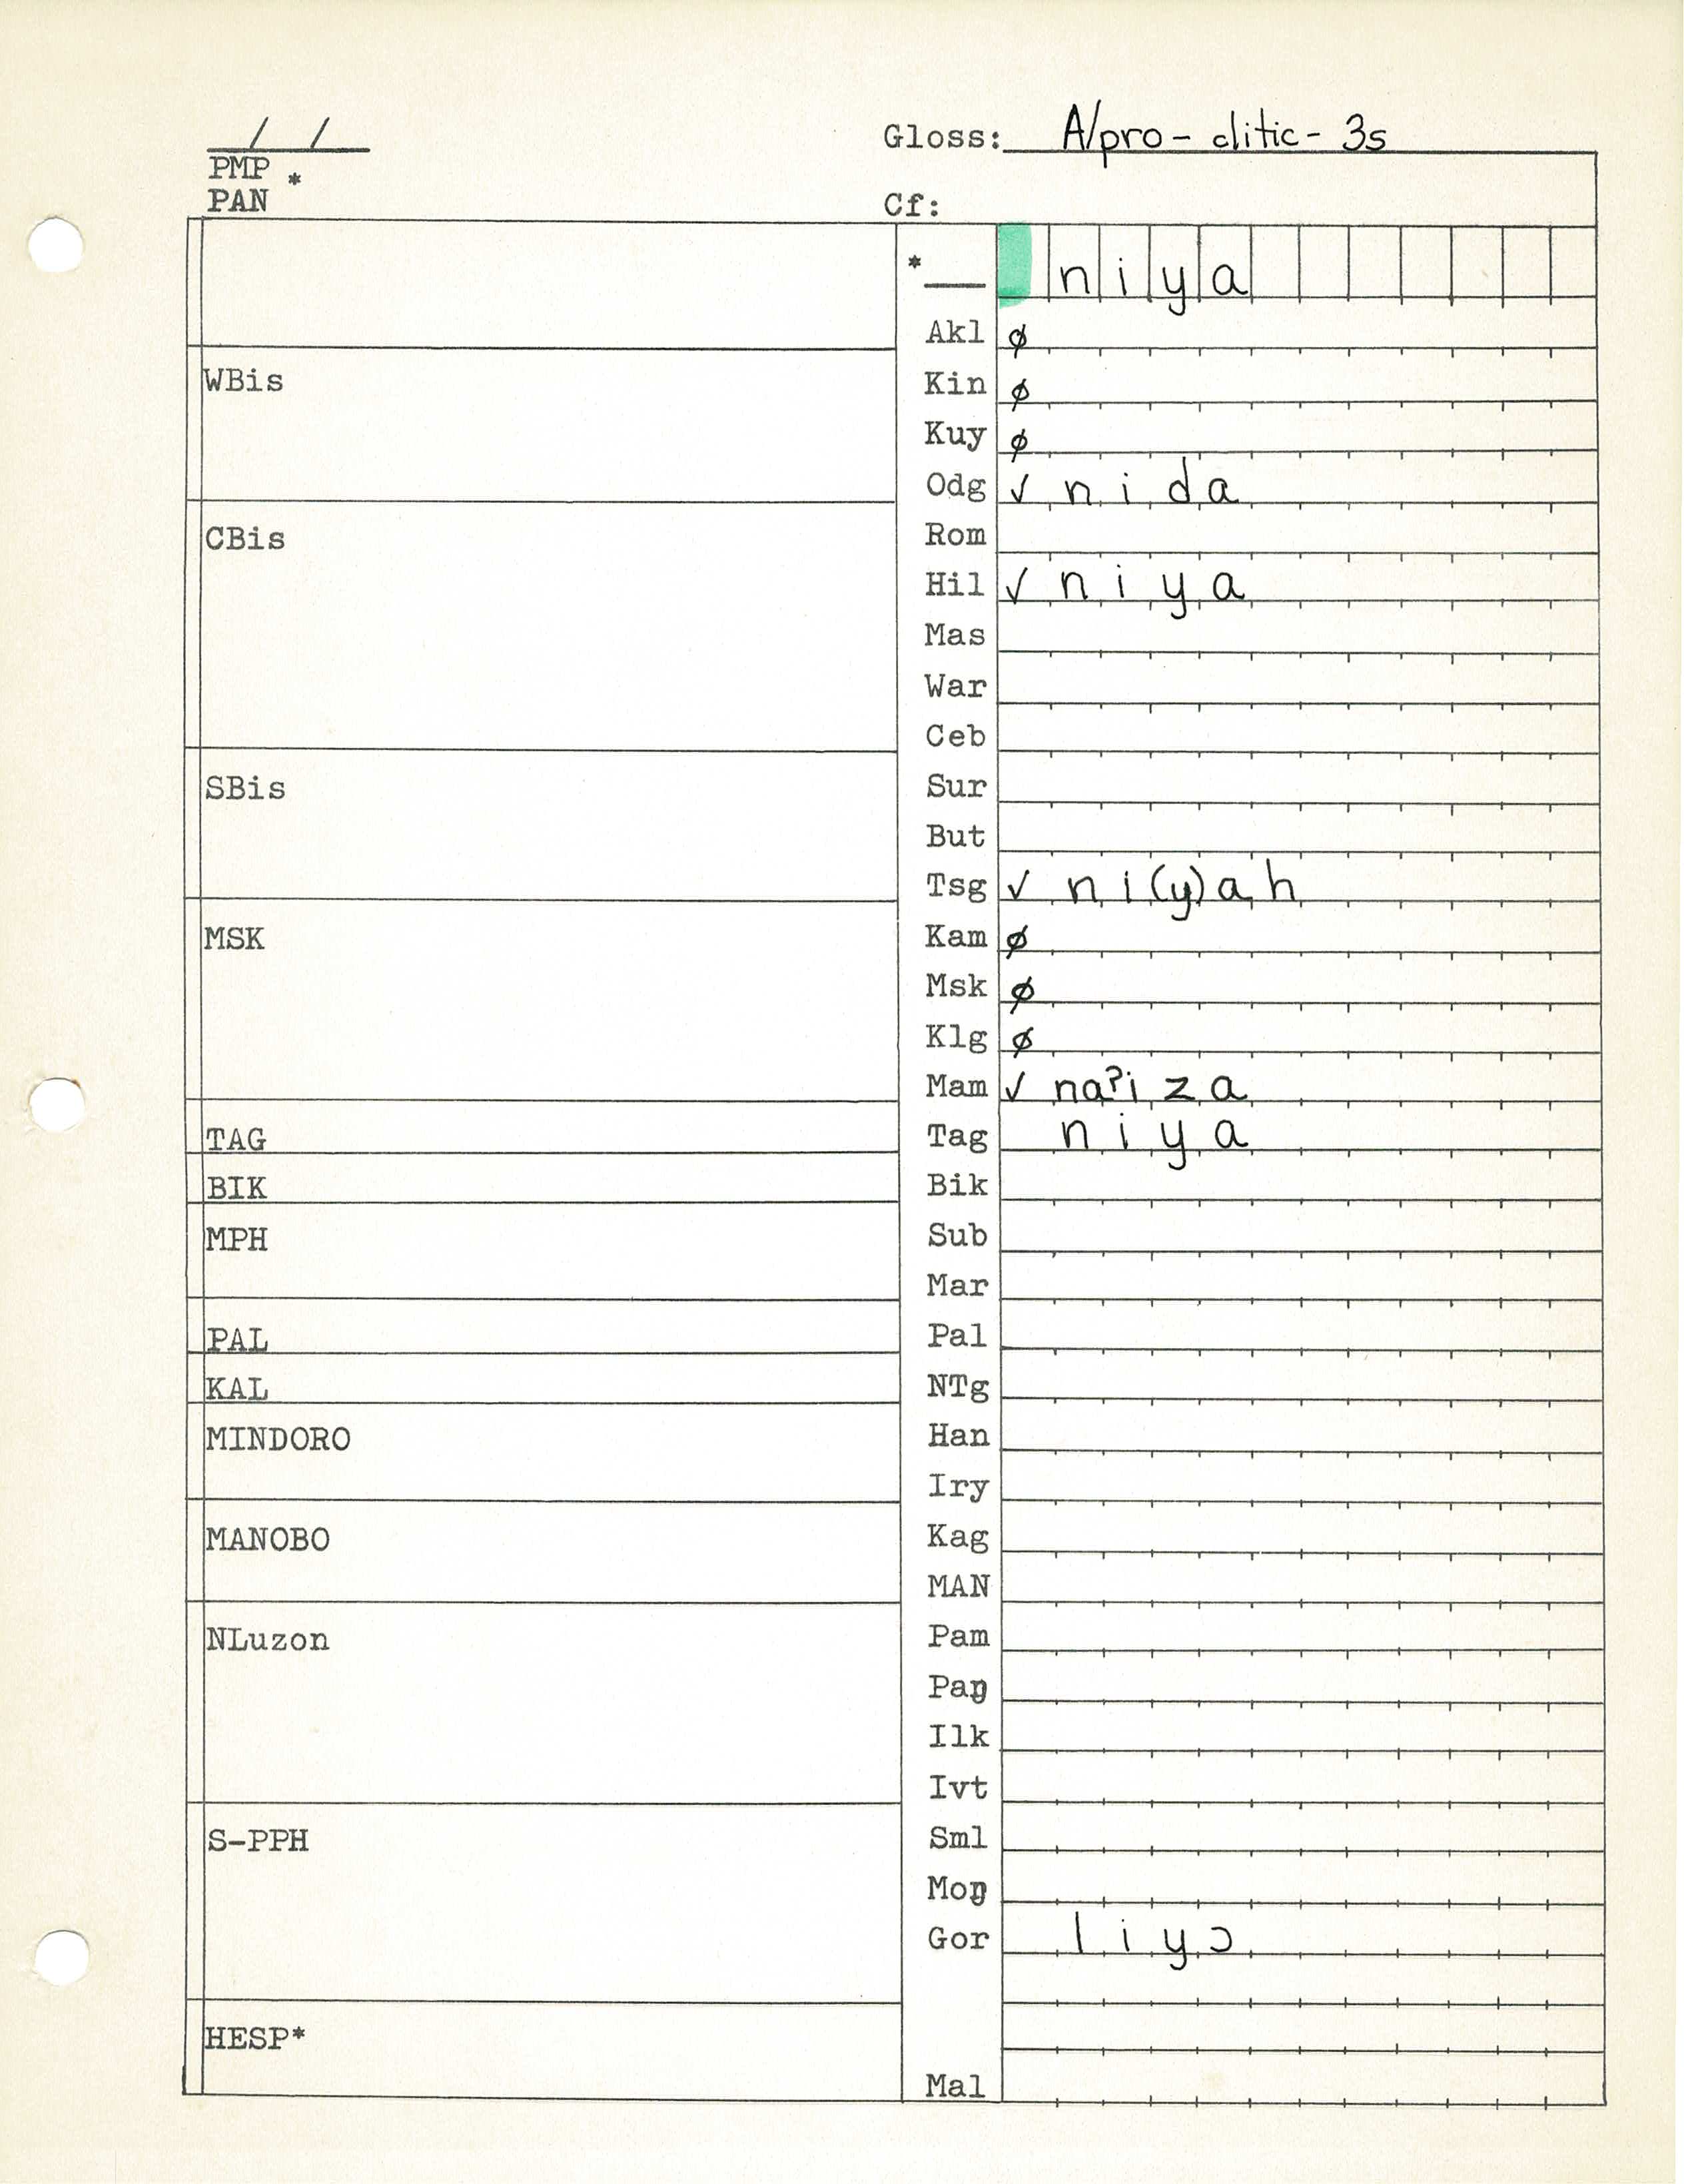 / /
Gloss: A/pro - clitic - 3s
PMP *
PAN
Cf:
* niya
Akl ∅
WBis
Kin ∅
Kuy ∅
Odg ✓ nida
CBis
Rom
Hil ✓ niya
Mas
War
Ceb
SBis
Sur
But
Tsg ✓ ni(y)ah
MSK
Kam ∅
Msk ∅
Klg ∅
Mam ✓ naʔiza
TAG
Tag niya
BIK
Bik
MPH
Sub
Mar
PAL
Pal
KAL
NTg
MINDORO
Han
Iry
MANOBO
Kag
MAN
NLuzon
Pam
Paŋ
Ilk
Ivt
S-PPH
Sml
Moŋ
Gor liyɔ
HESP*
Mal